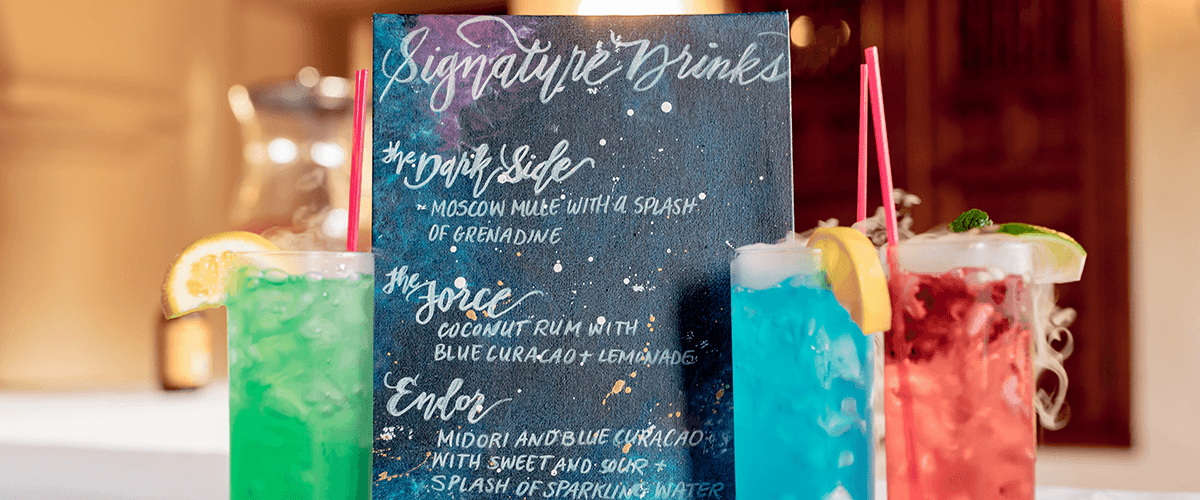 Signature Drinks
the Dark Side
~ MOSCOW MULE WITH A SPLASH
OF GRENADINE
the Force
COCONUT RUM WITH
BLUE CURACAO + LEMONADE
Endor
MIDORI AND BLUE CURACAO
WITH SWEET AND SOUR +
SPLASH OF SPARKLING WATER